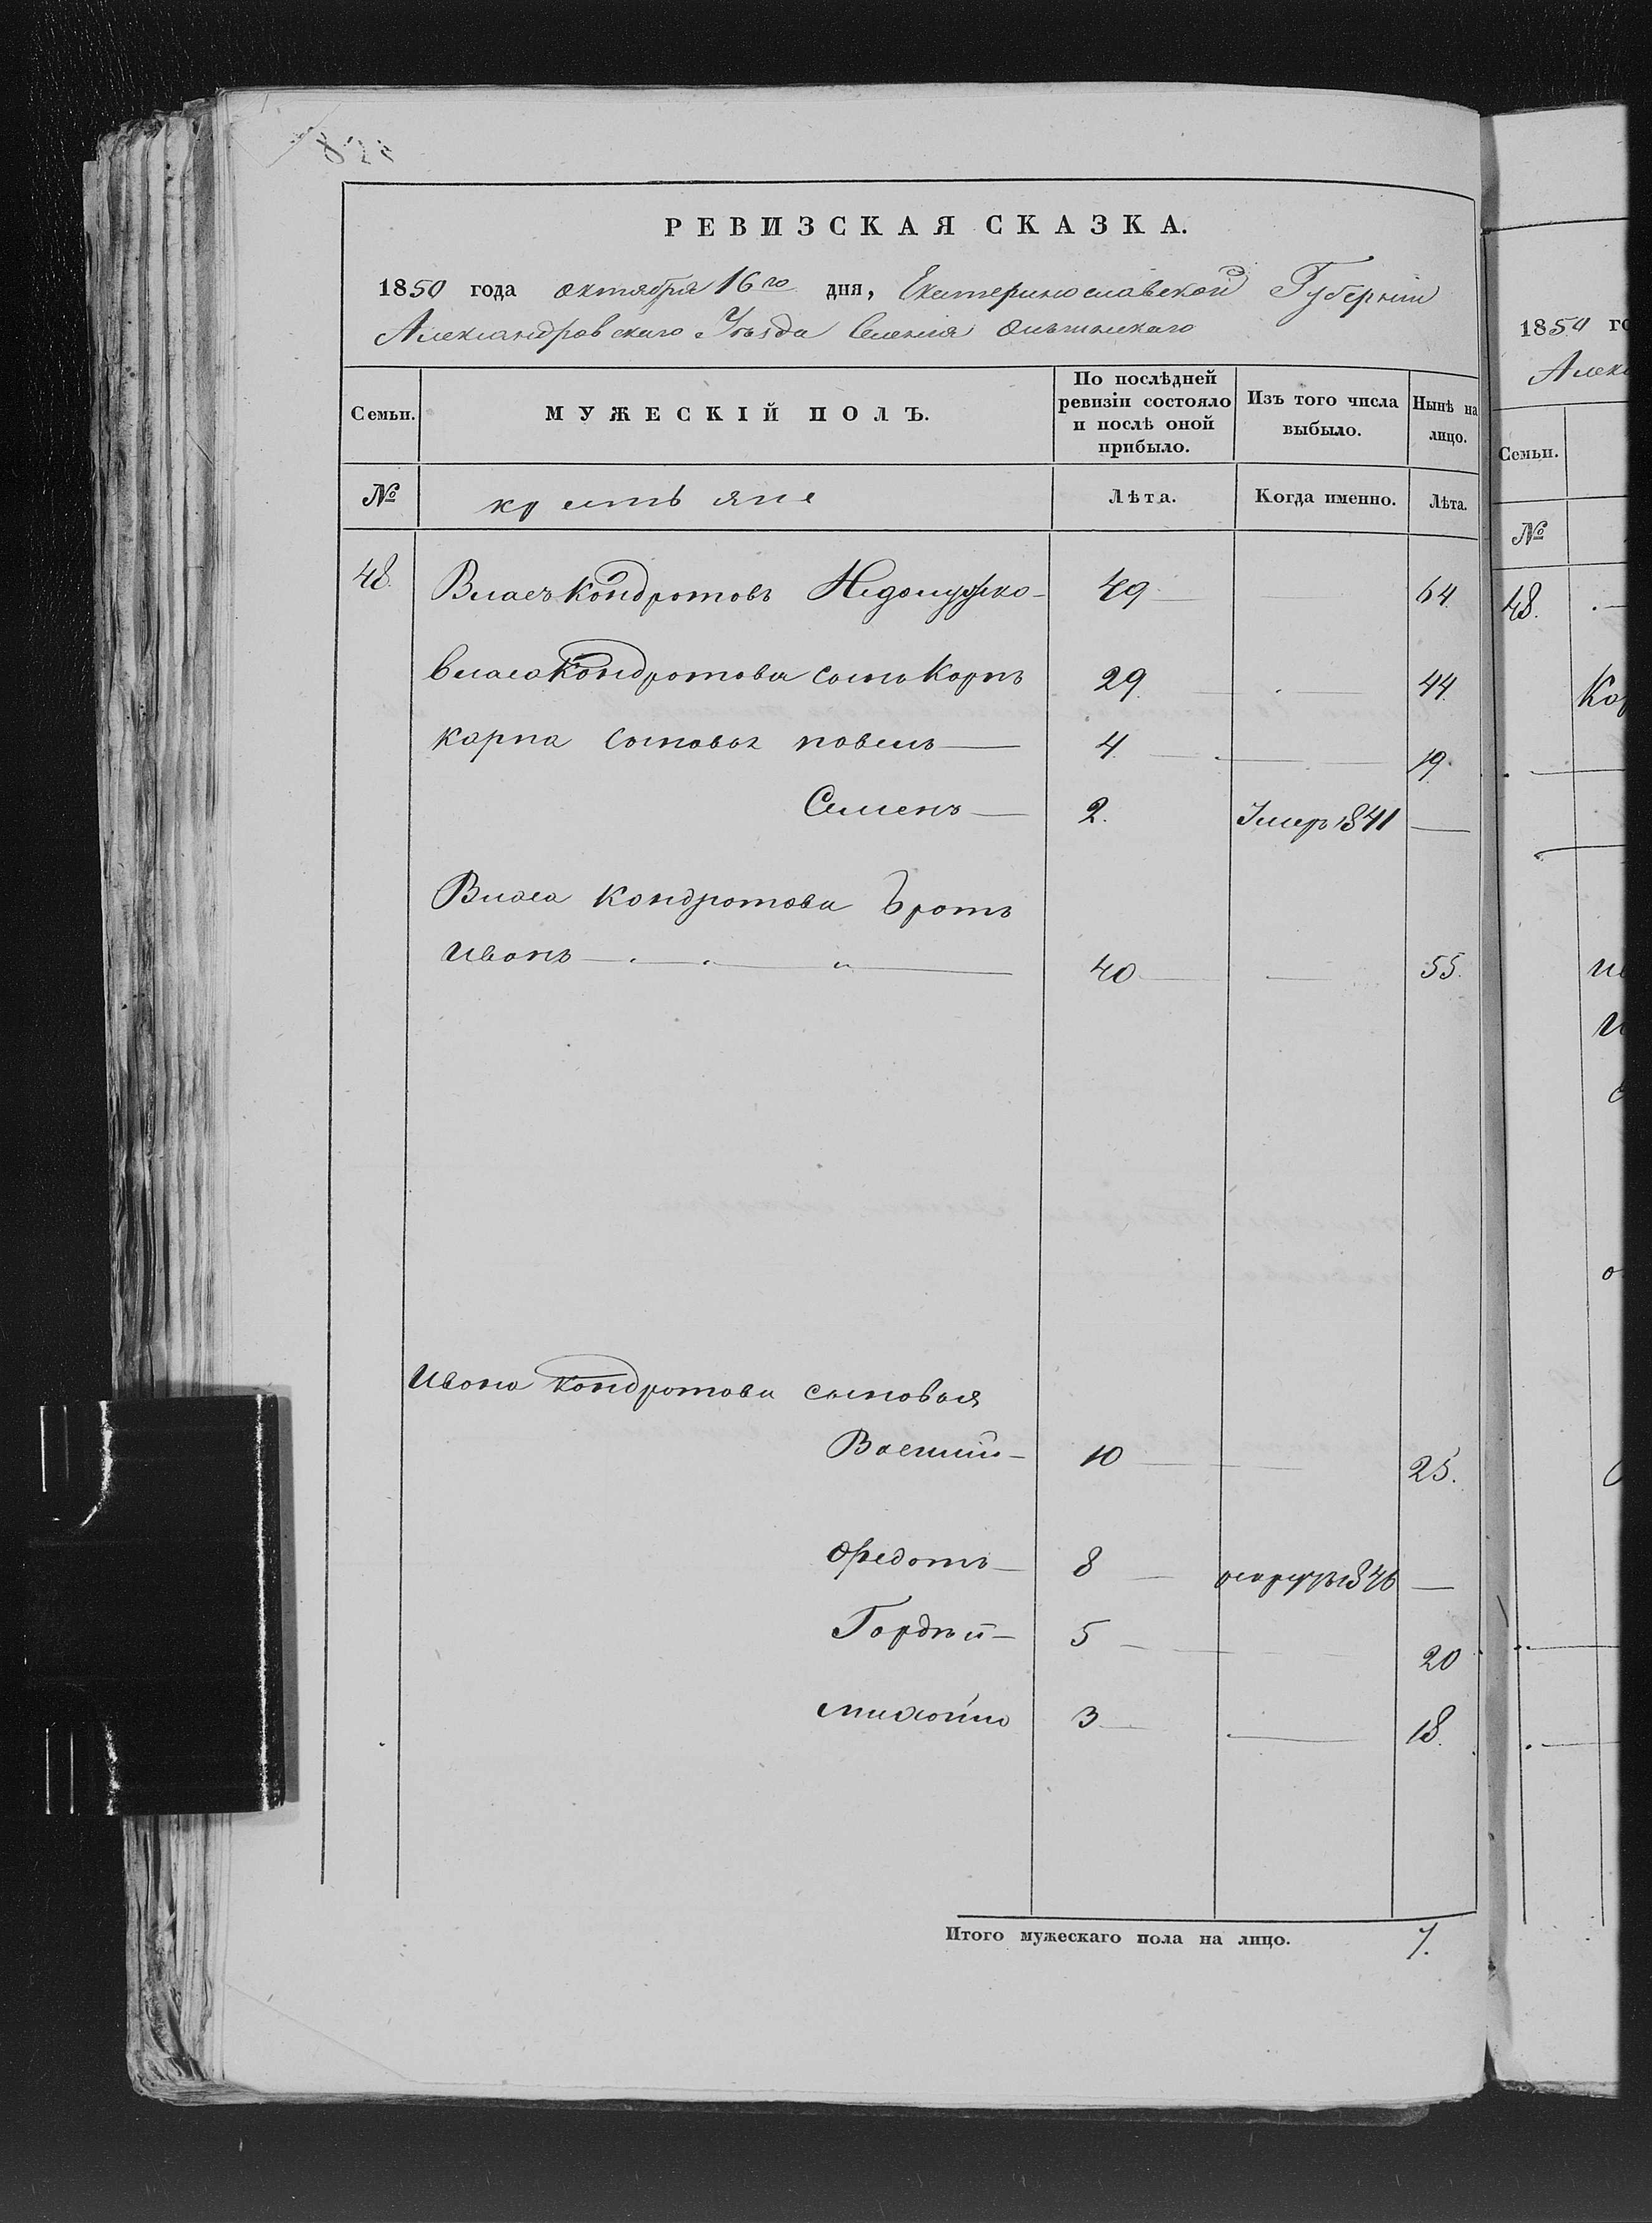 РЕВИЗСКАЯ СКАЗКА.
1850 года октября 16го дня, Екатеринославской Губернии
Александровскаго Уѣзда Селения
Семьи. МУЖЕСКІЙ ПОЛЪ. По послѣдней ревизіи состояло и послѣ оной прибыло. Изъ того числа выбыло. Нынѣ на лицо.
№ крестьяне Лѣта. Когда именно. Лѣта.
48. Власъ Кондротовъ 49 64.
власа Кондротова сынъ Карпъ 29. 44.
карпа сыновья повелъ 4. 19.
Семенъ 2. Умеръ 1841
Власа Кондротова братъ
Иванъ 40 55.
Ивана Кондротова сыновья
Василий 10 25.
Федотъ 8 1846
Гордѣй 5 20
михайло 3 18.
Итого мужескаго пола на лицо. 7.
1850 го
Алекс
Семьи.
№
48.
Кар